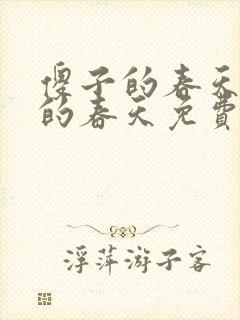 傻子的春天
的春天免费
浮萍游子客